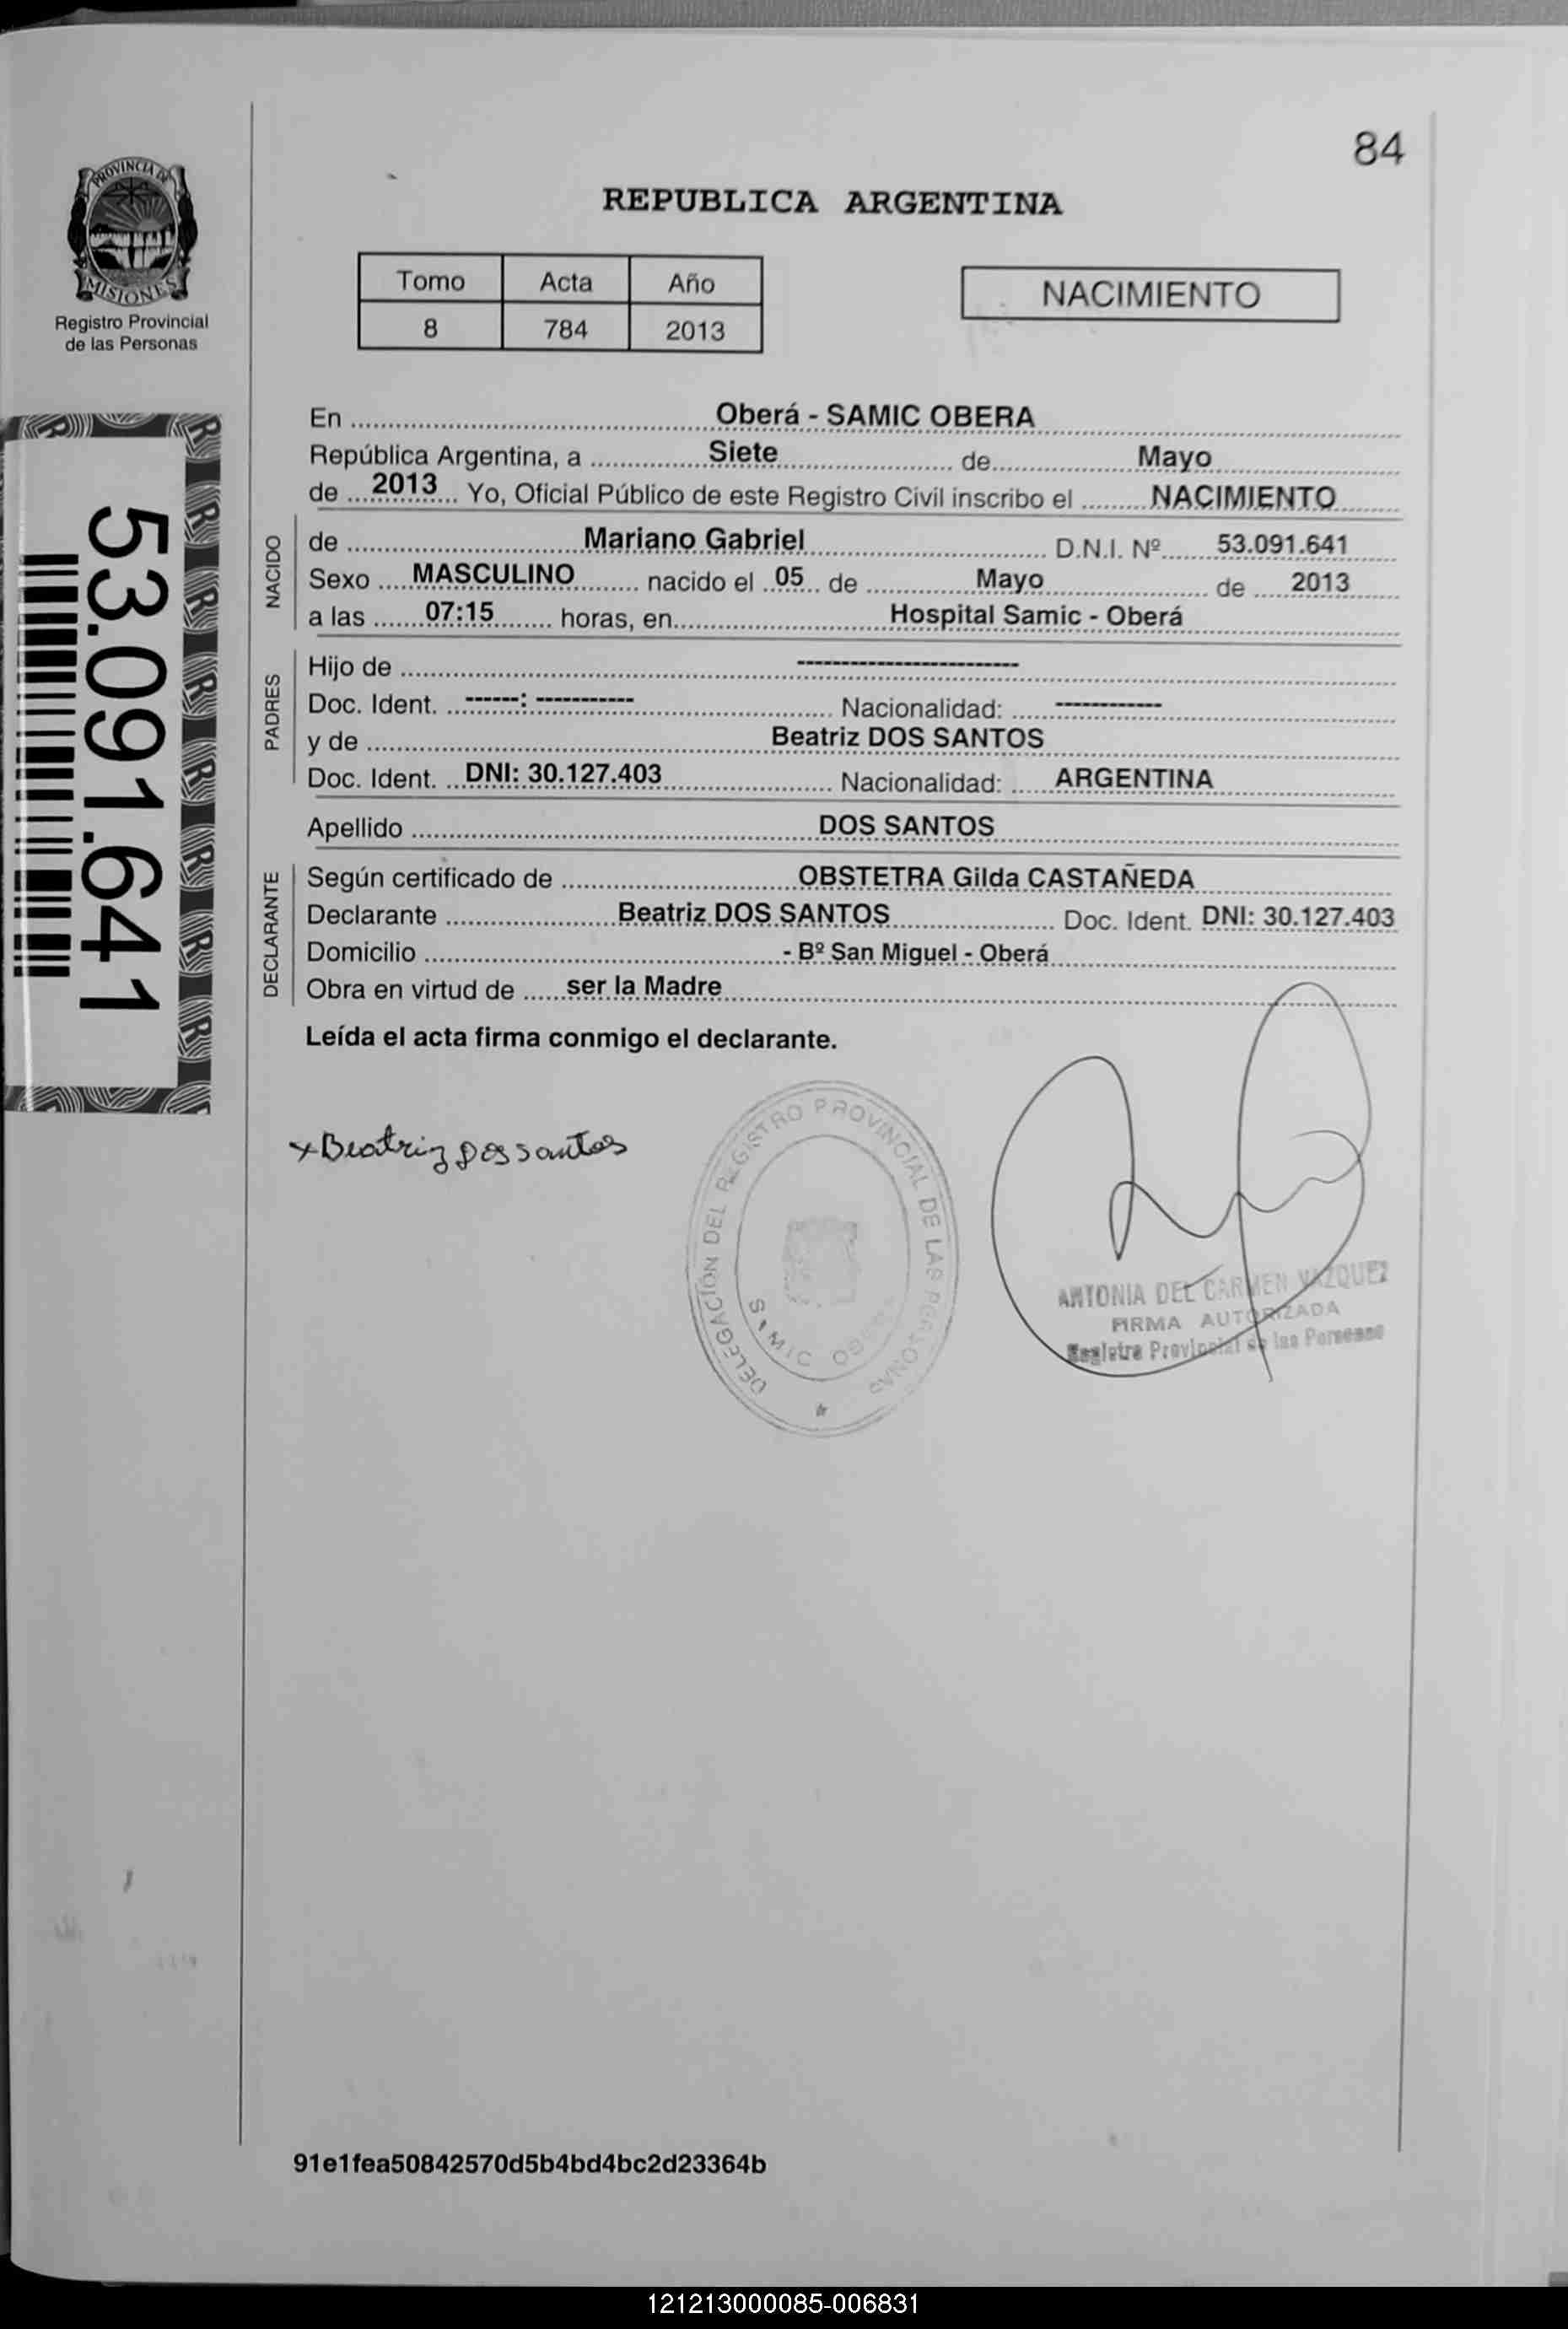 84
REPUBLICA ARGENTINA
PROVINCIA DE
MISIONES
Registro Provincial
de las Personas
Tomo Acta Año
8 784 2013
NACIMIENTO
53.091.641
En Oberá - SAMIC OBERA
República Argentina, a Siete de Mayo
de 2013 Yo, Oficial Público de este Registro Civil inscribo el NACIMIENTO
NACIDO
de Mariano Gabriel D.N.I. Nº 53.091.641
Sexo MASCULINO nacido el 05 de Mayo de 2013
a las 07:15 horas, en Hospital Samic - Oberá
PADRES
Hijo de ------------------------
Doc. Ident. ------: ----------- Nacionalidad: ------------
y de Beatriz DOS SANTOS
Doc. Ident. DNI: 30.127.403 Nacionalidad: ARGENTINA
Apellido DOS SANTOS
DECLARANTE
Según certificado de OBSTETRA Gilda CASTAÑEDA
Declarante Beatriz DOS SANTOS Doc. Ident. DNI: 30.127.403
Domicilio - Bº San Miguel - Oberá
Obra en virtud de ser la Madre
Leída el acta firma conmigo el declarante.
x Beatriz Dos santos
DELEGACIÓN DEL REGISTRO PROVINCIAL DE LAS PERSONAS
SAMIC OBERA
ANTONIA DEL CARMEN VAZQUEZ
FIRMA AUTORIZADA
Registro Provincial de las Personas
91e1fea50842570d5b4bd4bc2d23364b
121213000085-006831